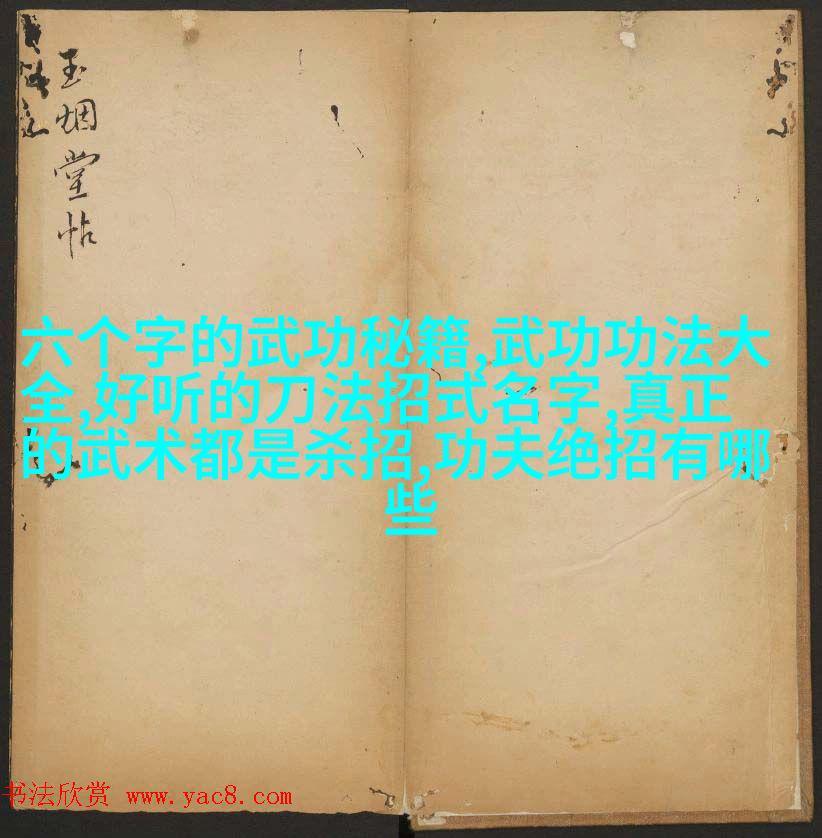 玉烟堂帖
六个字的武功秘籍,武功功法大
全,好听的刀法招式名字,真正
的武术都是杀招,功夫绝招有哪
些
书法欣赏 www.yac8.com